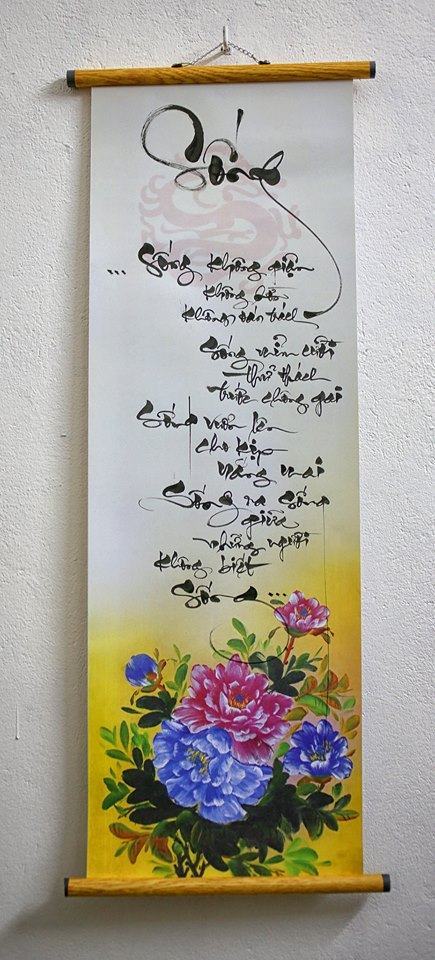 Sống
... Sống không giận
không hờn
không oán trách
Sống mỉm cười
thử thách
trước chông gai
Sống vươn lên
cho kịp
nắng mai
Sống ra sống
giữa
những người
không biết
Sống ...